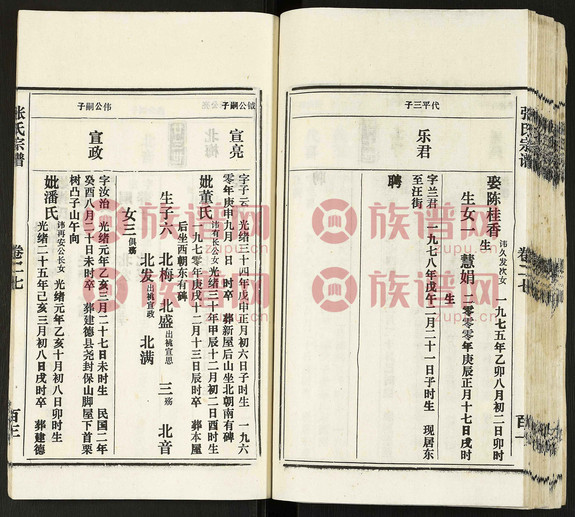 张氏宗谱
卷二七
娶陈桂香 讳久发次女 一九七五年乙卯八月初二日卯时生
生女一 慧娟 二零零零年庚辰正月十七日戌时生
代平三子
乐君
字兰君 一九七八年戊午二月二十一日子时生 现居东至汪街
聘
钺公嗣子
宣亮
字子云 光绪三十四年戊申正月初六日子时生 一九六零年庚申九月 日 时卒 葬新屋后山坐北朝南有碑
妣董氏 讳有长公女 光绪三十年甲辰十二月初二日酉时生 一九七零年庚戌十二月十三日辰时卒 葬本屋后坐西朝东有碑
生子六 北梅 北盛 出祧宣思 三 殇 北音 北发 出祧宣政 北满
女三 俱殇
伟公嗣子
宣政
字汝治 光绪元年乙亥三月二十七日未时生 民国二年癸酉八月二十日未时卒 葬建德县尧封保山脚屋下首栗树凸子山午向
妣潘氏 讳再安公长女 光绪元年乙亥十月初八日卯时生 光绪二十五年己亥三月初八日戌时卒 葬建德
张氏宗谱
卷二七
族谱网
zupu.cn
族谱网
zupu.cn
族谱网
zupu.cn
族谱网
zupu.cn